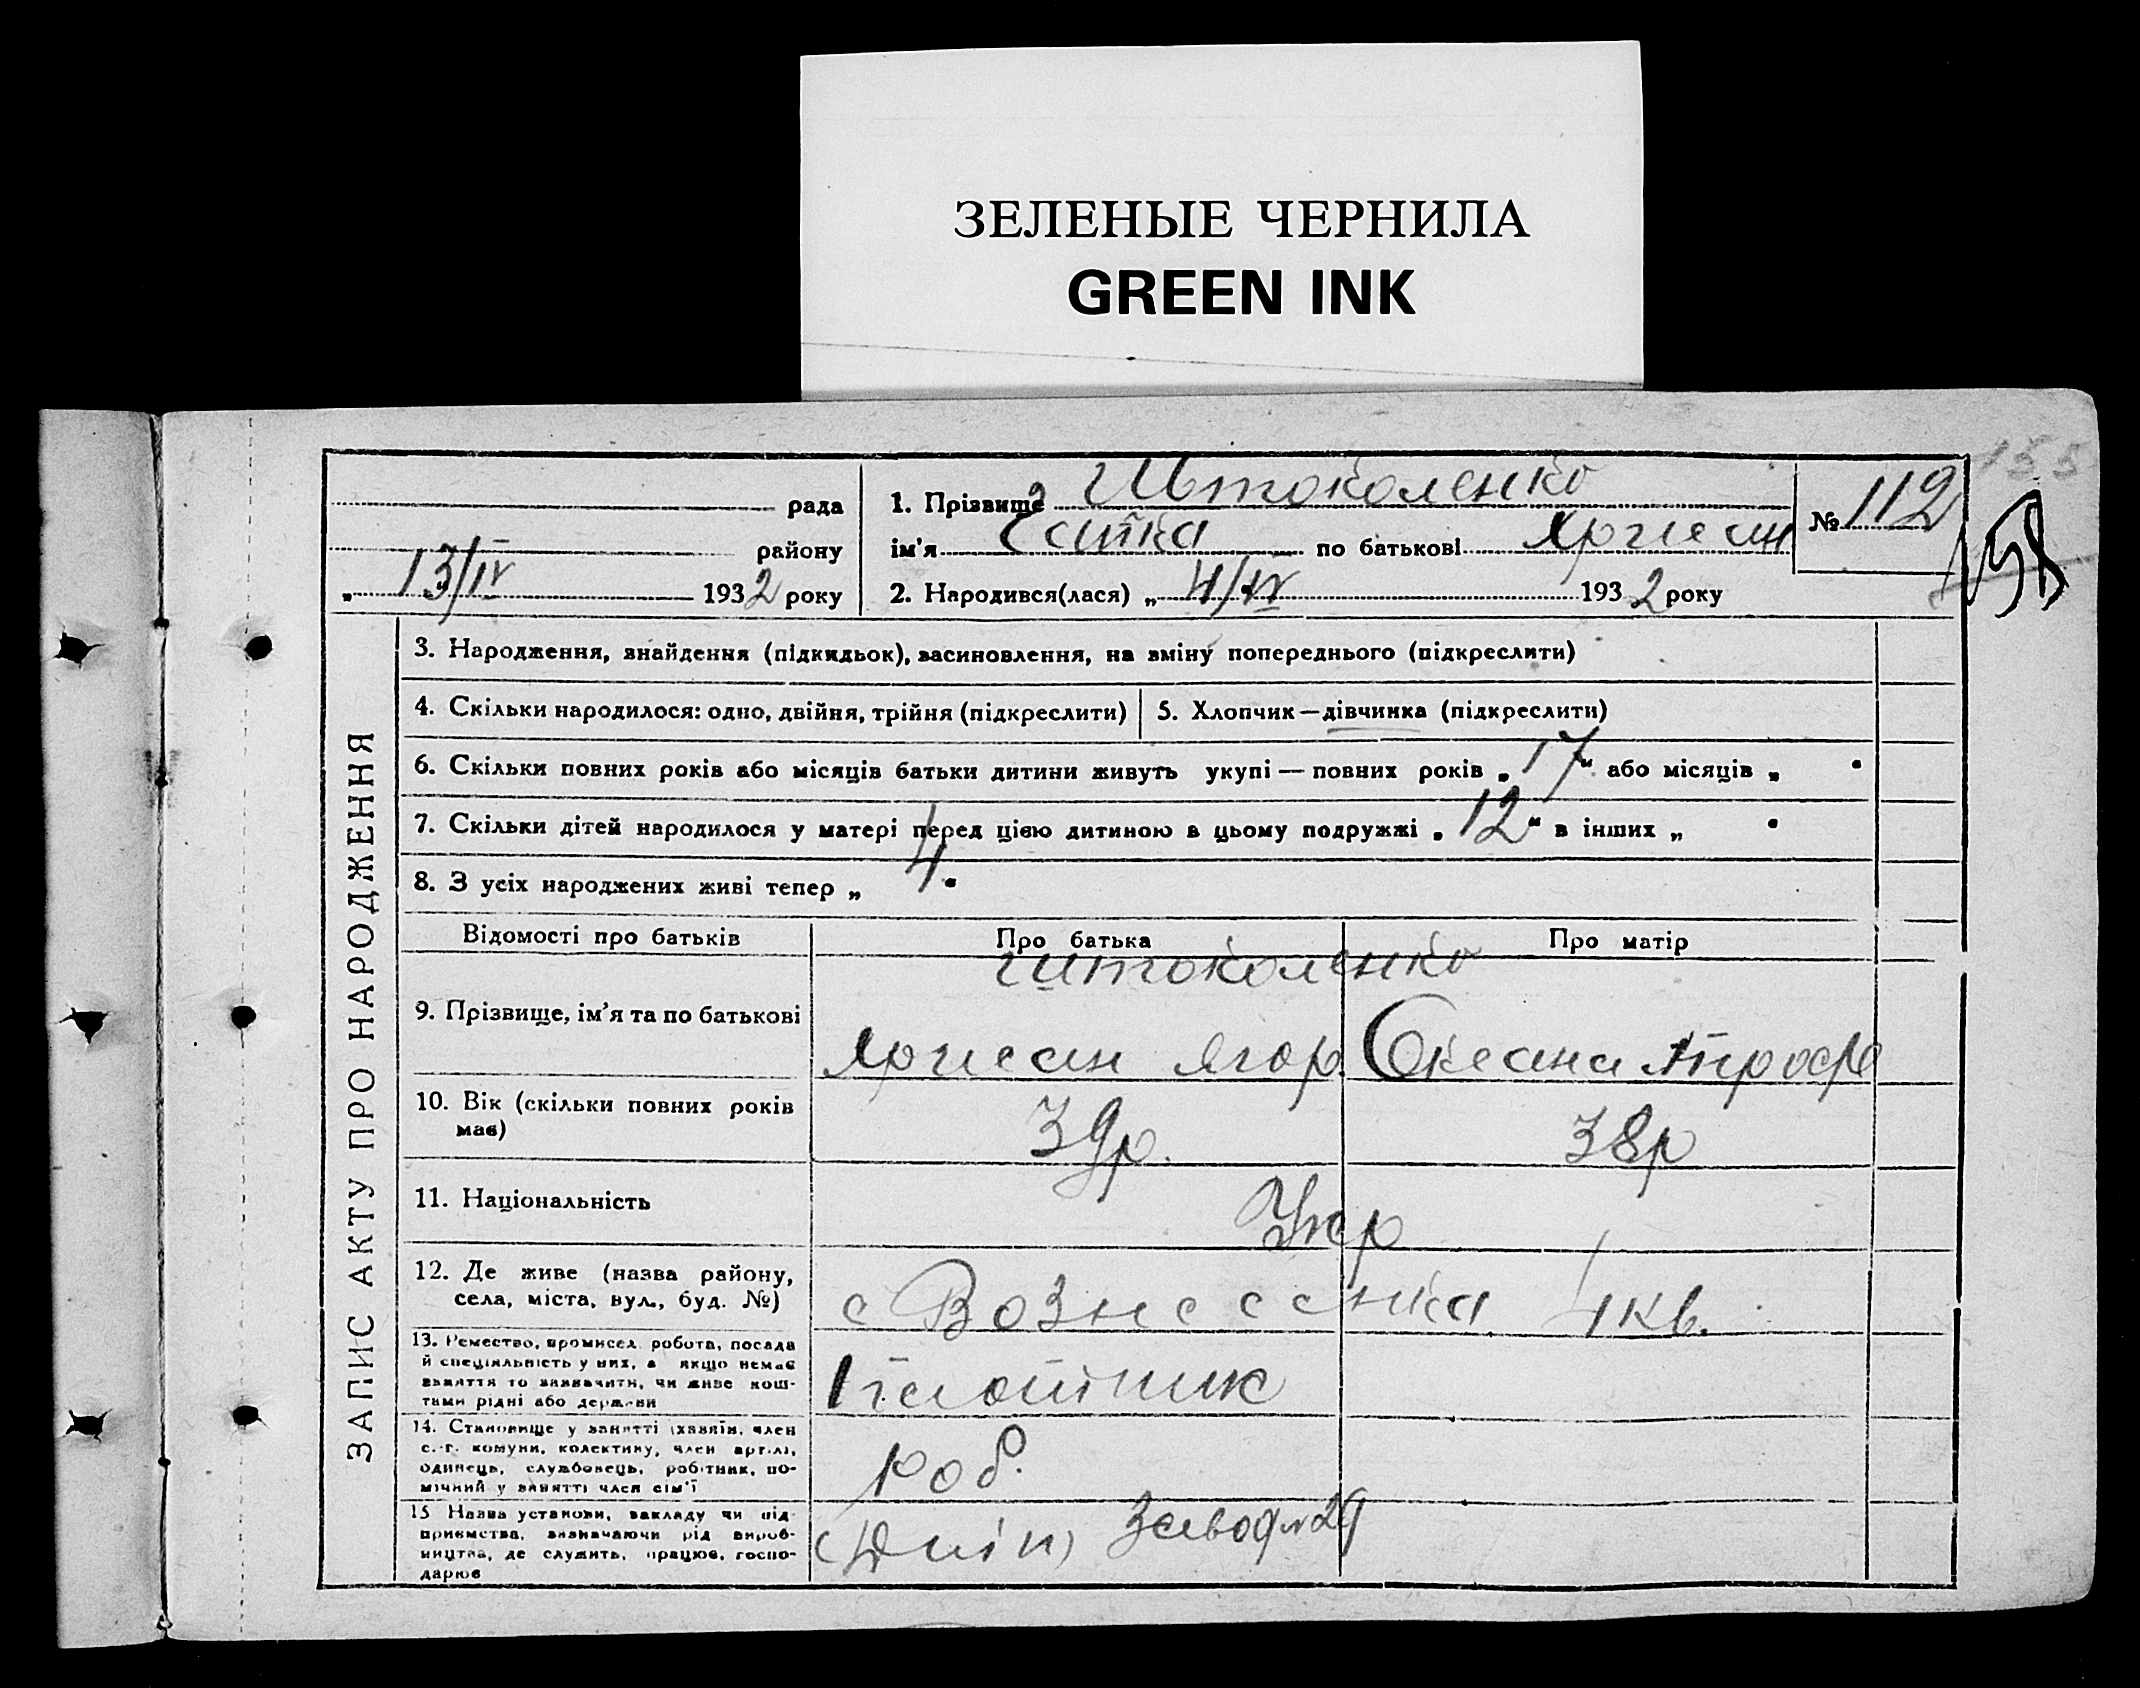 ЗЕЛЕНЫЕ ЧЕРНИЛА
GREEN INK
155
158
рада
району
„ 13/IV 1932 року
1. Прізвище Штоколенко
ім'я по батькові
2. Народився(лася) „ 4/IV 1932 року
№ 112
ЗАПИС АКТУ ПРО НАРОДЖЕННЯ
3. Народження, знайдення (підкидьок), засиновлення, на зміну попереднього (підкреслити)
4. Скільки народилося: одно, двійня, трійня (підкреслити)
5. Хлопчик—дівчинка (підкреслити)
6. Скільки повних років або місяців батьки дитини живуть укупі — повних років „ 17 “ або місяців „ “
7. Скільки дітей народилося у матері перед цією дитиною в цьому подружжі „ 12 “ в інших „ “
8. З усіх народжених живі тепер „ 4 “
Відомості про батьків Про батька Про матір
Штоколенко
9. Прізвище, ім'я та по батькові
Ягор.
10. Вік (скільки повних років має)
39р. 38р
11. Національність
Укр
12. Де живе (назва району, села, міста, вул., буд. №)
с Вознесенка 1 кв.
13. Ремество, промисел, робота, посада
й спеціяльність у них, а якщо немає
заняття то зазначити, чи живе кош-
тами рідні або держави
Плотник
14. Становище у занятті (хазяїн, член
с.-г. комуни, колективу, член артілі,
одинець, службовець, робітник, по-
мічний у занятті член сім'ї
роб.
15 Назва установи, закладу чи під-
приємства, зазначаючи рід вироб-
ництва, де служить, працює, госпо-
дарює
(Дніп) Завод №29